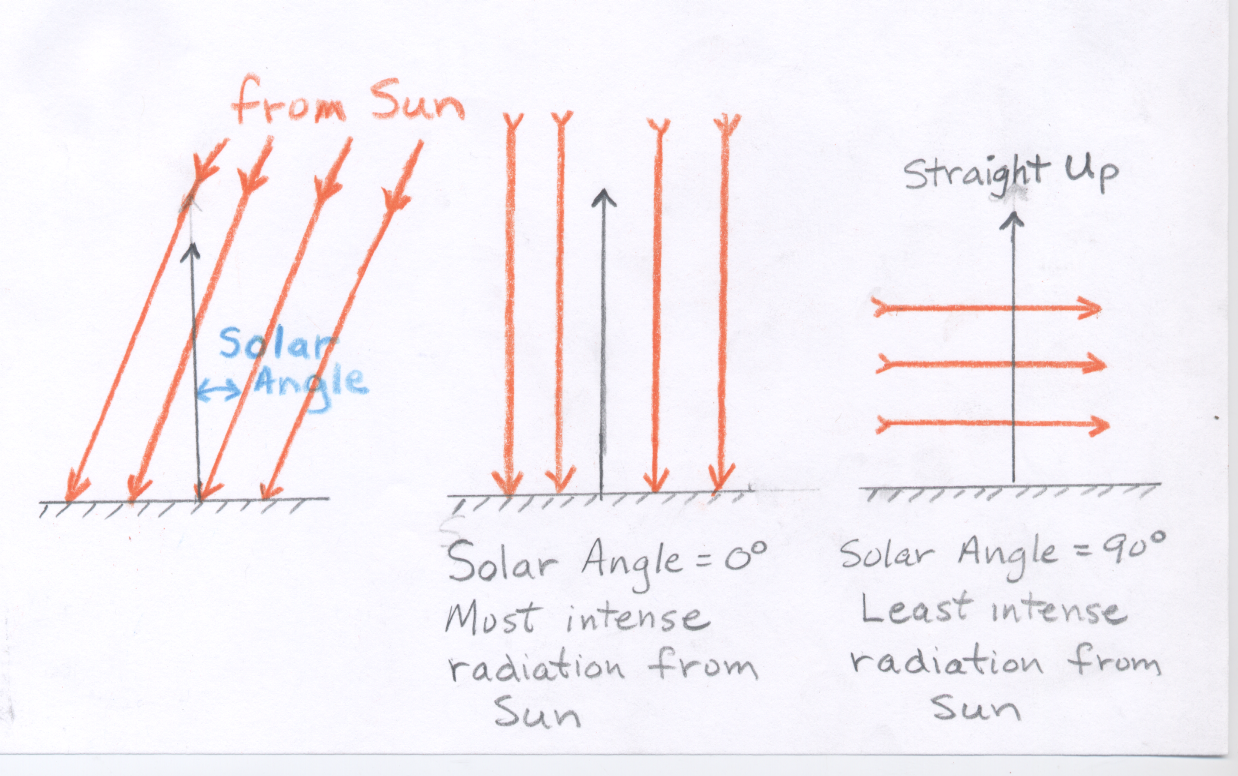 from Sun
Solar
Angle
Straight Up
Solar Angle = 0°
Most intense
radiation from
Sun
Solar Angle = 90°
Least intense
radiation from
Sun